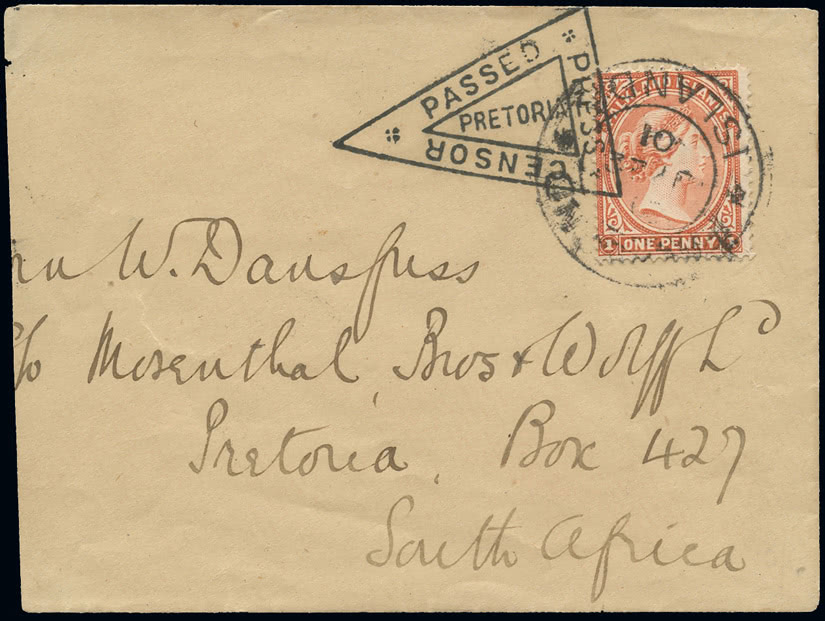 PASSED
PRESS
CENSOR
PRETORIA
ISLANDS
01
FALKLAND ISLANDS
1 ONE PENNY
W. Dansfuss
c/o Mosenthal, Bros & Wolff Ld
Pretoria, Box 427
South Africa